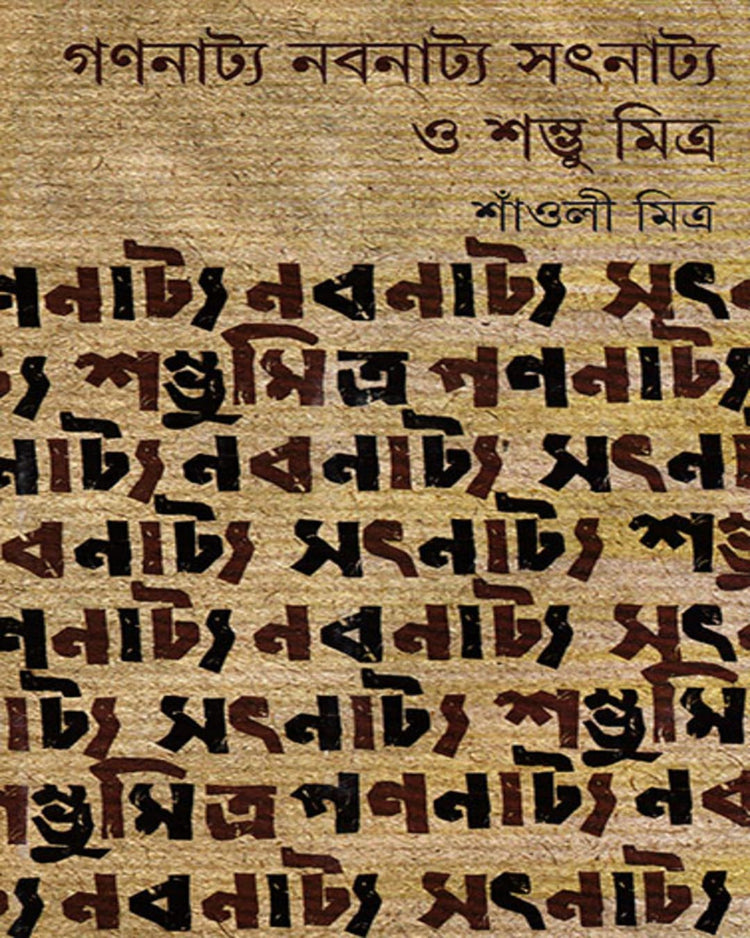 গণনাট্য নবনাট্য সৎনাট্য
ও শম্ভু মিত্র
শাঁওলী মিত্র
ণনাট্য নবনাট্য সৎন
ট্য শম্ভুমিত্র গণনাট্য
নাট্য নবনাট্য সৎনা
বনাট্য সৎনাট্য শম্ভু
ণনাট্য নবনাট্য সৎন
াট্য সৎনাট্য শম্ভুমি
শম্ভুমিত্র গণনাট্য নব
ট্য নবনাট্য সৎনাট্য